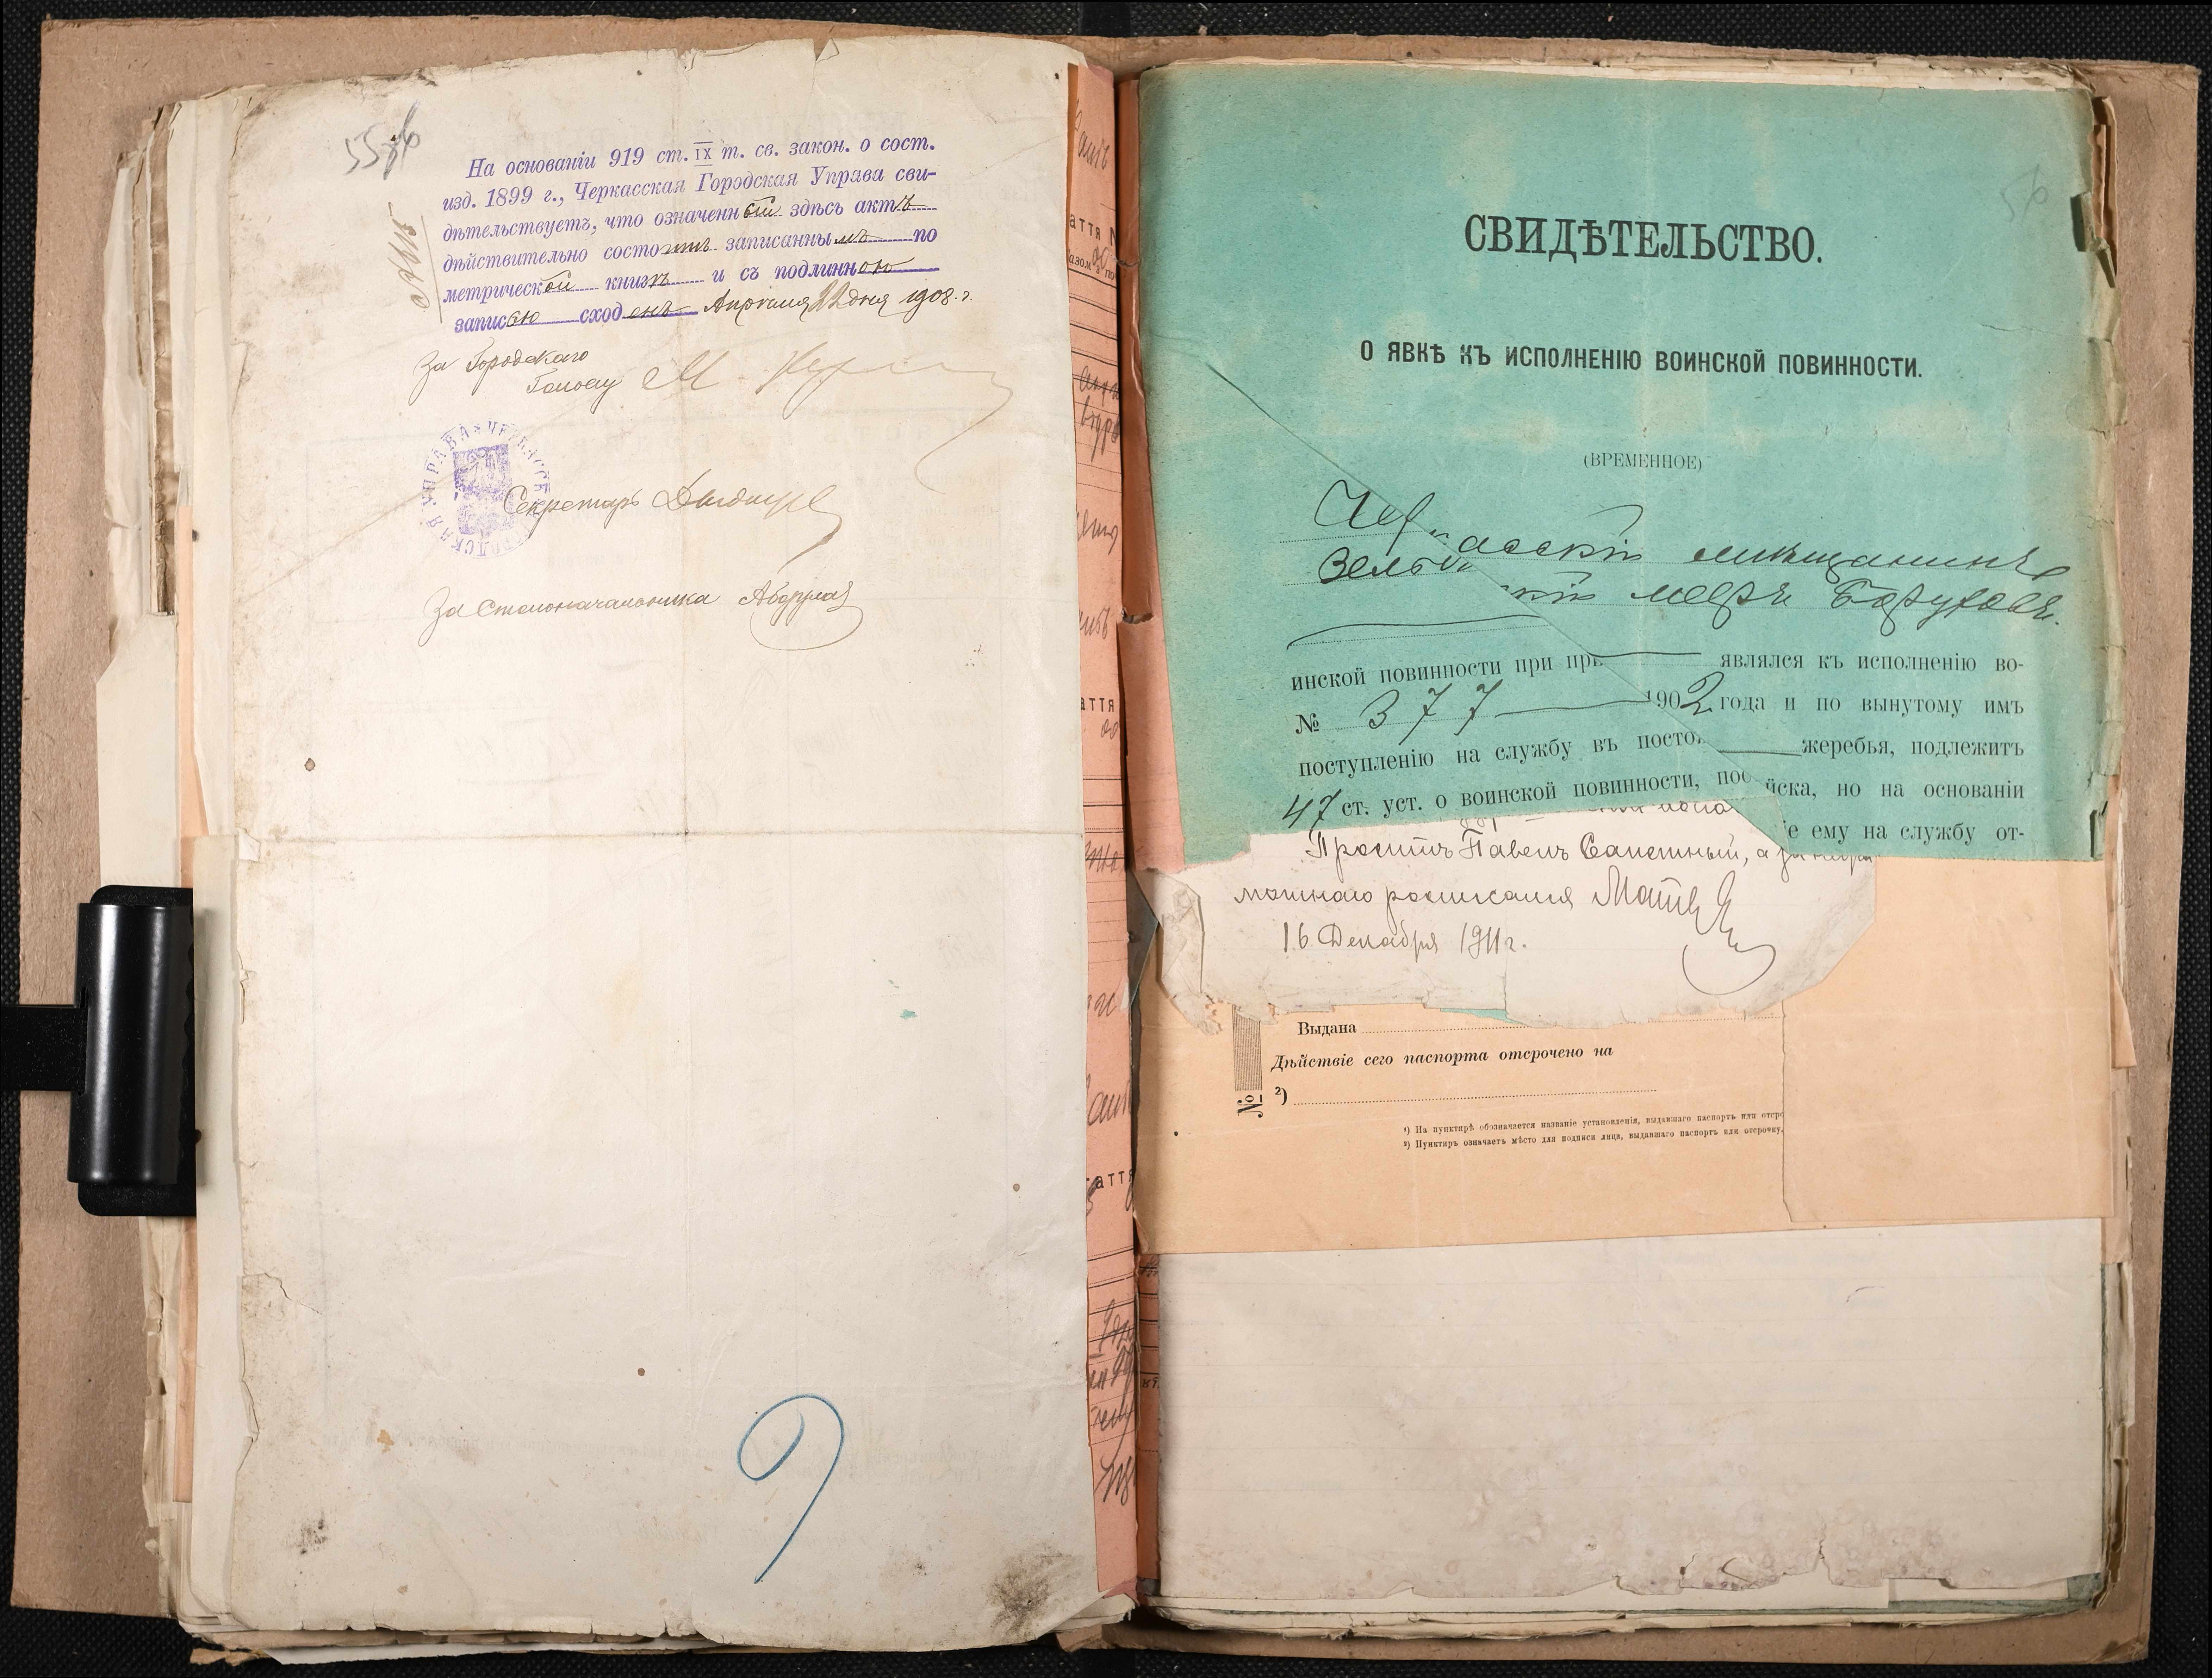 55 об
На основаніи 919 ст. IX т. св. закон. о сост.
изд. 1899 г., Черкасская Городская Управа сви-
дѣтельствуетъ, что означенный здѣсь актъ
дѣйствительно состоитъ записаннымъ по
метрической книгѣ и съ подлинною
записью сходенъ Апрѣля 22 дня 1908 г.
За Городского
Голову М.
ГОРОДСКАЯ УПРАВА
Секретарь
За Столоначальника
9
56
СВИДѢТЕЛЬСТВО.
О ЯВКѢ КЪ ИСПОЛНЕНІЮ ВОИНСКОЙ ПОВИННОСТИ.
(ВРЕМЕННОЕ)
Черкасскій мѣщанинъ
меръ Боруховъ.
являлся къ исполненію во-
инской повинности при при
1902 года и по вынутому имъ
№ 377
жеребья, подлежитъ
поступленію на службу въ посто
йска, но на основаніи
47 ст. уст. о воинской повинности, пос
іе ему на службу от-
Просилъ Павелъ а за
мотнаго росписался
16 Декабря 1911 г.
Выдана
Дѣйствіе сего паспорта отсрочено на
№ ²)
¹) На пунктирѣ обозначается названіе установленія, выдавшаго паспортъ или отср
²) Пунктиръ означаетъ мѣсто для подписи лица, выдавшаго паспортъ или отсрочку.